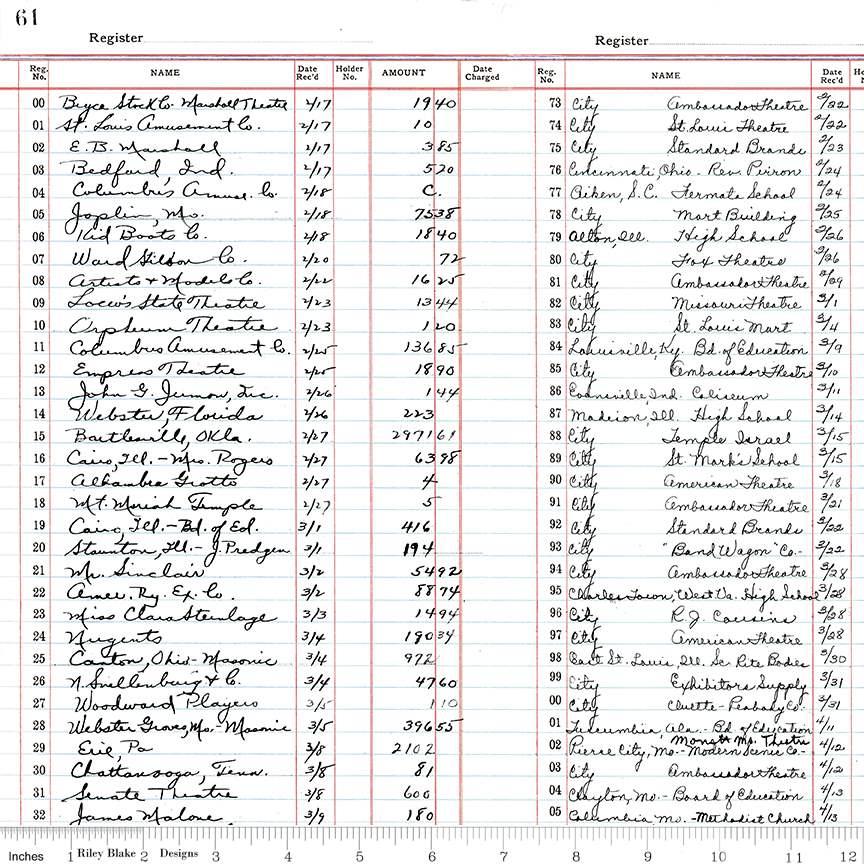 61
Register
Register
Reg. No. NAME Date Rec'd Holder No. AMOUNT Date Charged
Reg. No. NAME Date Rec'd
00 Bryce Stock Co. Marshall Theatre 2/17 19 40
01 St. Louis Amusement Co. 2/17 10
02 E.B. Marshall 2/17 3 85
03 Bedford, Ind. 2/17 5 20
04 Columbus Amuse. Co. 2/18 C.
05 Joplin, Mo. 2/18 75 38
06 Kid Boots Co. 2/18 18 40
07 Ward Co. 2/20 72
08 Artists & Models Co. 2/22 16 25
09 Loew's State Theatre 2/23 13 44
10 Orpheum Theatre 2/23 1 20
11 Columbus Amusement Co. 2/25 136 85
12 Empress Theatre 2/25 18 90
13 John G. Jermon, Inc. 2/26 1 44
14 Webster, Florida 2/26 223
15 Bartlesville, Okla. 2/27 2971 61
16 Cairo, Ill. - Mrs. Rogers 2/27 63 98
17 Alhambra Grotto 2/27 4
18 Mt. Moriah Temple 2/27 5
19 Cairo, Ill. - Bd. of Ed. 3/1 416
20 Staunton, Ill. - J. Predgen 3/1 194
21 Mr. Sinclair 3/2 54 92
22 Amer. Ry. Ex. Co. 3/2 88 74
23 Miss Clara Steinlage 3/3 14 94
24 Nugents 3/4 190 34
25 Canton, Ohio - Masonic 3/4 972
26 N. Snellenburg & Co. 3/4 47 60
27 Woodward Players 3/5 1 10
28 Webster Groves, Mo. - Masonic 3/5 396 55
29 Erie, Pa 3/8 2102
30 Chattanooga, Tenn. 3/8 81
31 Senate Theatre 3/8 600
32 James Malone 3/9 180
73 City Ambassador Theatre 2/22
74 City St. Louis Theatre 2/22
75 City Standard Brands 2/23
76 Cincinnati, Ohio - Rev. 2/24
77 Aiken, S.C. Fermata School 2/24
78 City Mart Building 2/25
79 Alton, Ill. High School 2/26
80 City Fox Theatre 2/26
81 City Ambassador Theatre 2/29
82 City Missouri Theatre 3/1
83 City St. Louis Mart 3/4
84 Louisville, Ky. Bd. of Education 3/9
85 City Ambassador Theatre 3/10
86 Evansville, Ind. Coliseum 3/11
87 Madison, Ill. High School 3/14
88 City Temple Israel 3/15
89 City St. Mark's School 3/15
90 City American Theatre 3/18
91 City Ambassador Theatre 3/21
92 City Standard Brands 3/22
93 City "Band Wagon" Co. - 3/22
94 City Ambassador Theatre 3/28
95 Charles Town, West Va. High School 3/28
96 City R.J. Cousins 3/28
97 City American Theatre 3/28
98 East St. Louis, Ill. Sc. Rite Bodies 3/30
99 City Exhibitors Supply 3/31
00 City Cluett - Peabody Co. - 3/31
01 Tuscumbia, Ala. - Bd. of Education 4/11
Monett Mo. Theatre
02 Pierce City, Mo. - Modern Scenic Co. - 4/12
03 City Ambassador Theatre 4/12
04 Clayton, Mo. - Board of Education 4/13
05 Columbia Mo. - Methodist Church 4/13
Inches 1 Riley Blake 2 Designs 3 4 5 6 7 8 9 10 11 12